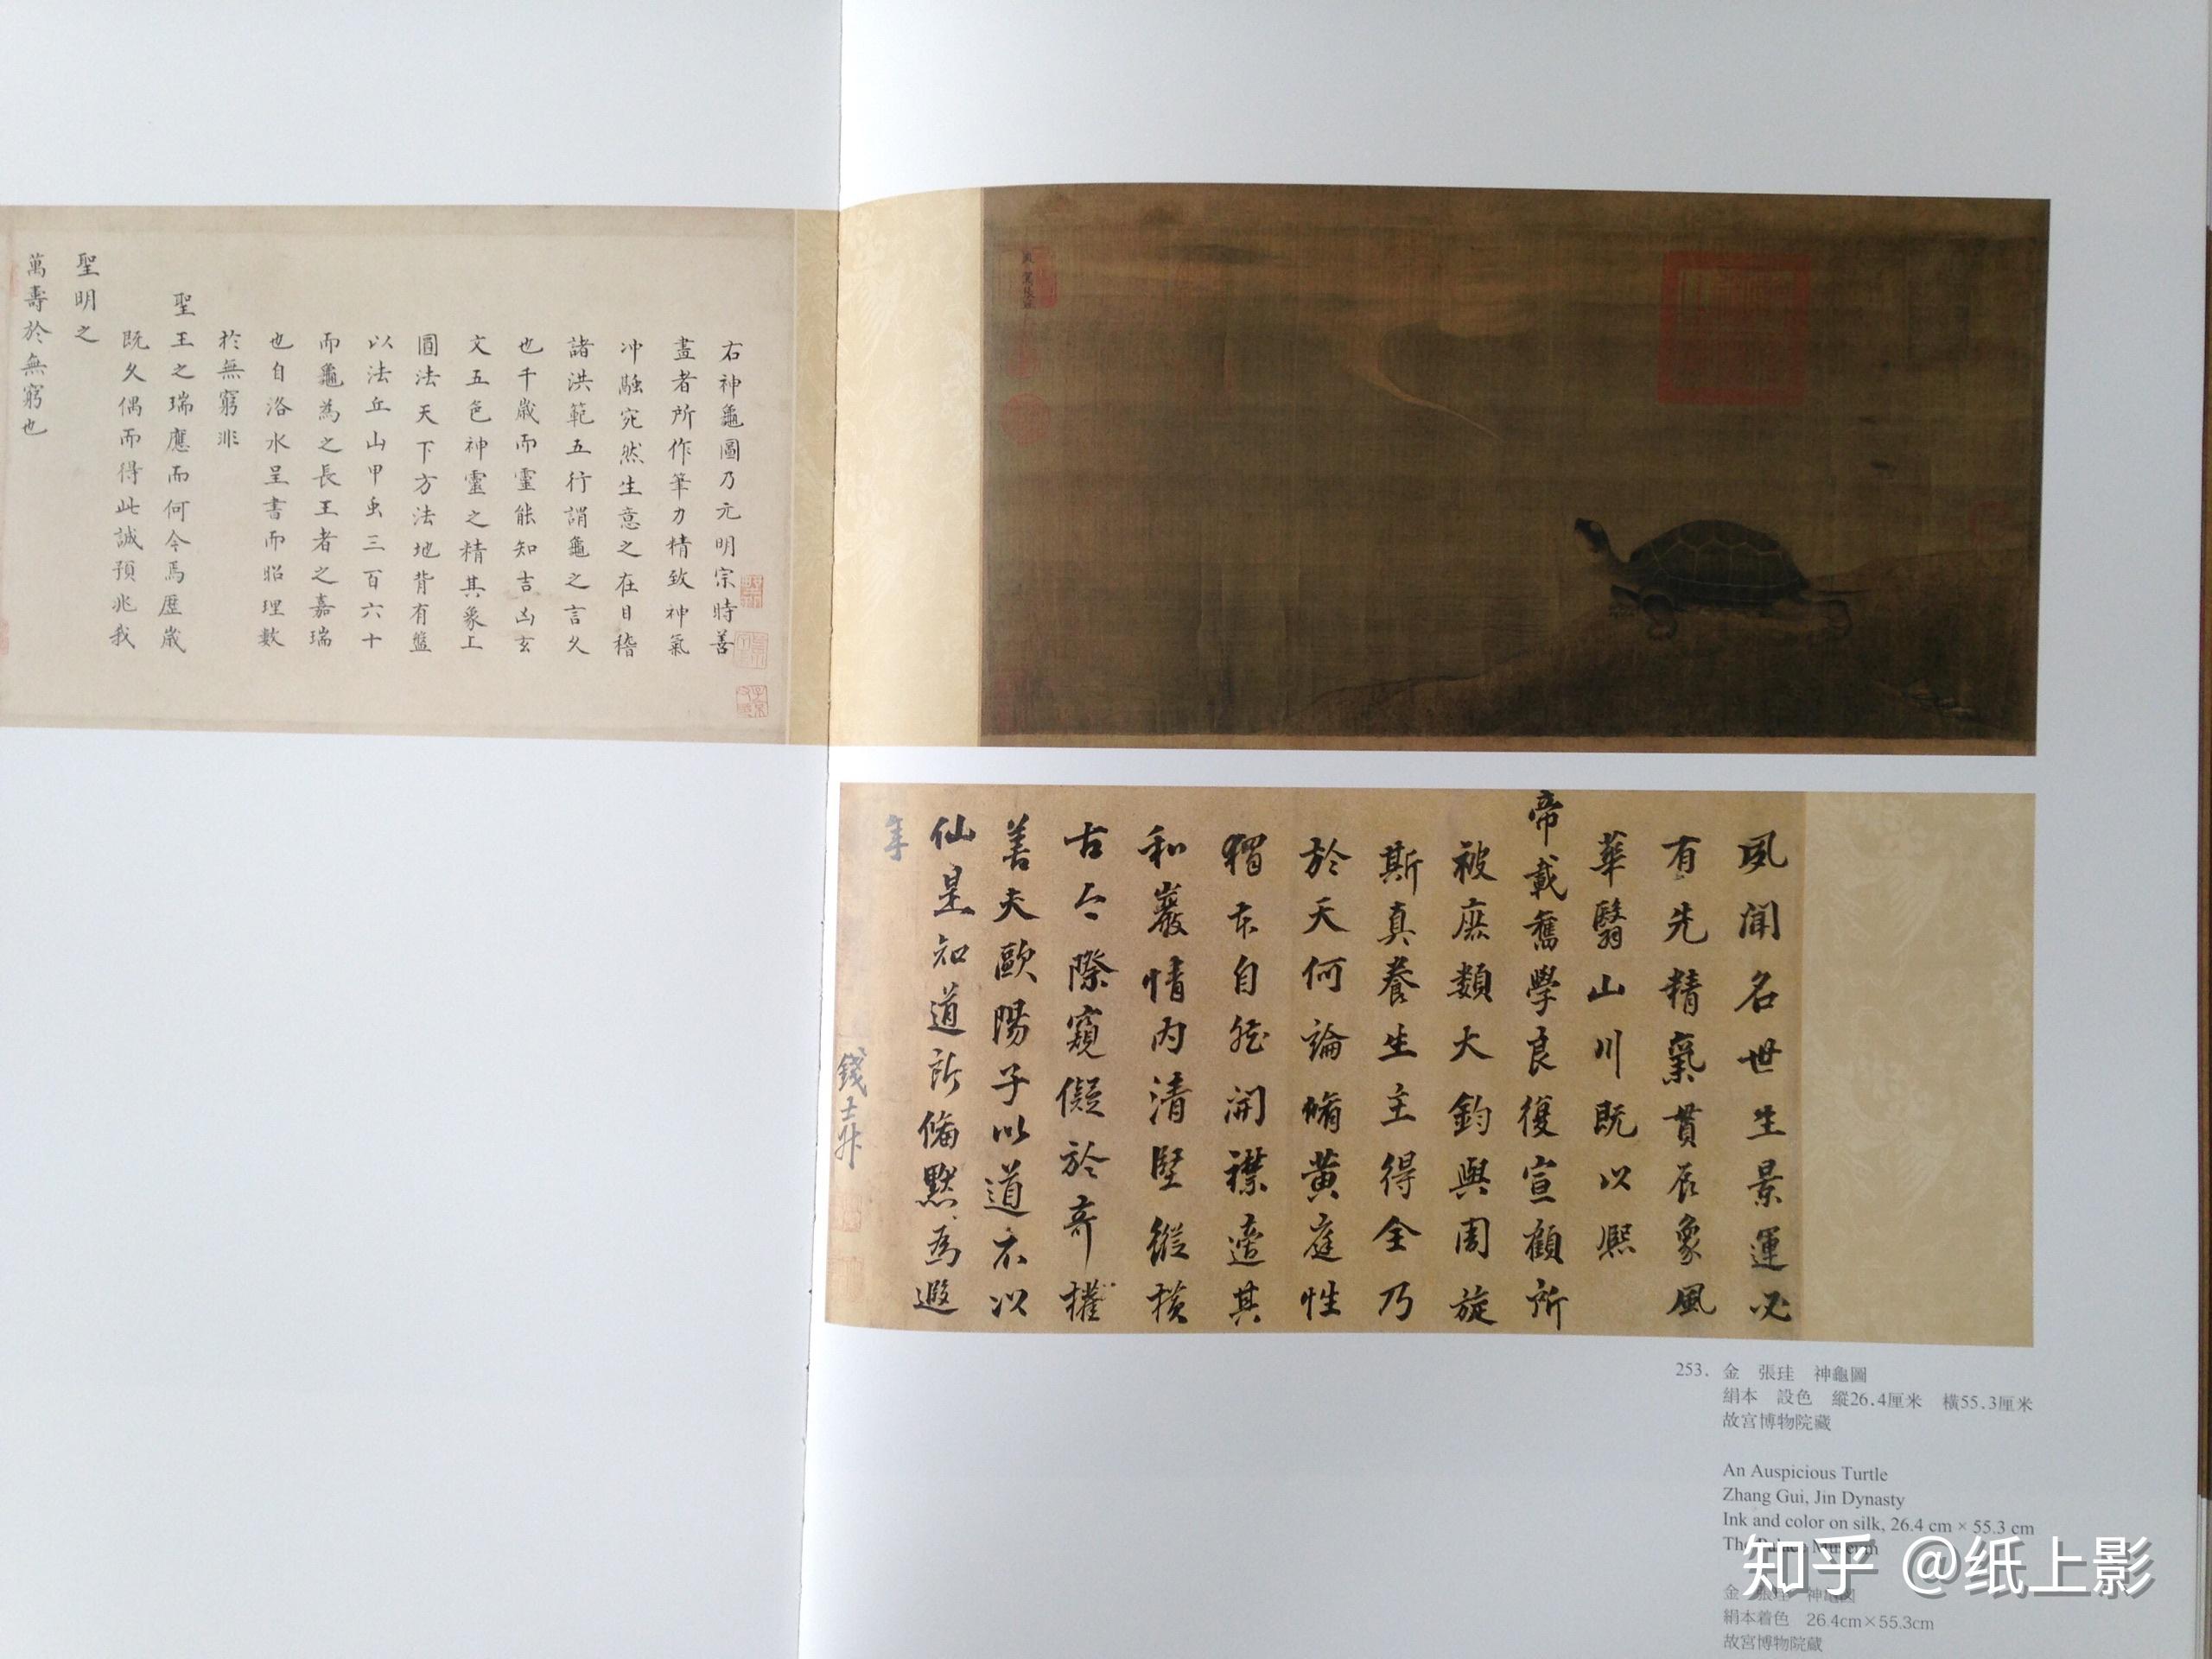 右神龜圖乃元明宗時善
畫者所作筆力精致神氣
冲融宛然生意之在目稽
諸洪範五行謂龜之言久
也千歲而靈能知吉凶玄
文五色神靈之精其象上
圓法天下方法地背有盤
以法丘山甲虫三百六十
而龜為之長王者之嘉瑞
也自洛水呈書而昭理數
於無窮非
聖王之瑞應而何今焉歷歲
既久偶而得此誠預兆我
聖明之
萬壽於無窮也
夙聞名世生景運必
有先精氣貫辰象風
華翳山川既以熙
帝載舊學良復宣顧所
被庶類大鈞與周旋
斯真養生主得全乃
於天何論脩黃庭性
本自然開襟其
和巖情内清堅縱橫
古今際窺儗於奇權
善夫歐陽子以道不以
仙是知道所脩默為遐
年
錢士升
253. 金 張珪 神龜圖
絹本 設色 縱26.4厘米 橫55.3厘米
故宮博物院藏
An Auspicious Turtle
Zhang Gui, Jin Dynasty
Ink and color on silk, 26.4 cm × 55.3 cm
The Palace Museum
金 張珪 神龜図
絹本着色 26.4cm×55.3cm
故宮博物院蔵
知乎 @纸上影